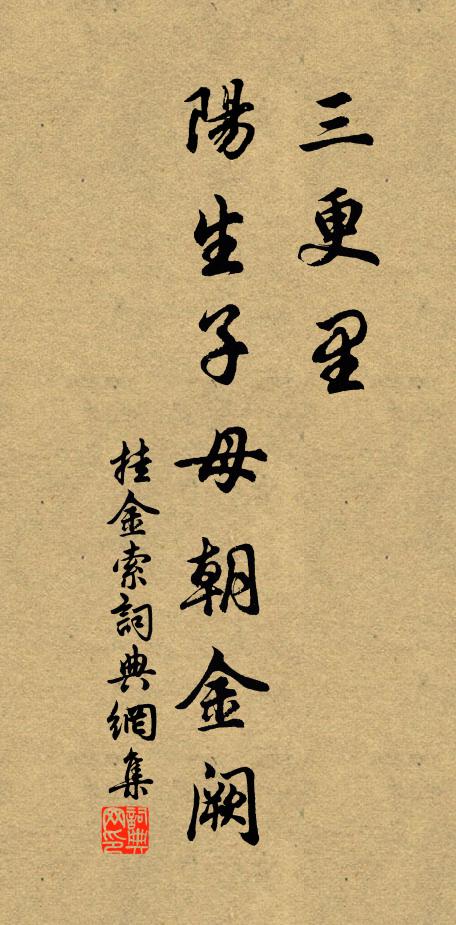 三更里
陽生子母朝金阙
挂金索詞典網集
詞典網印